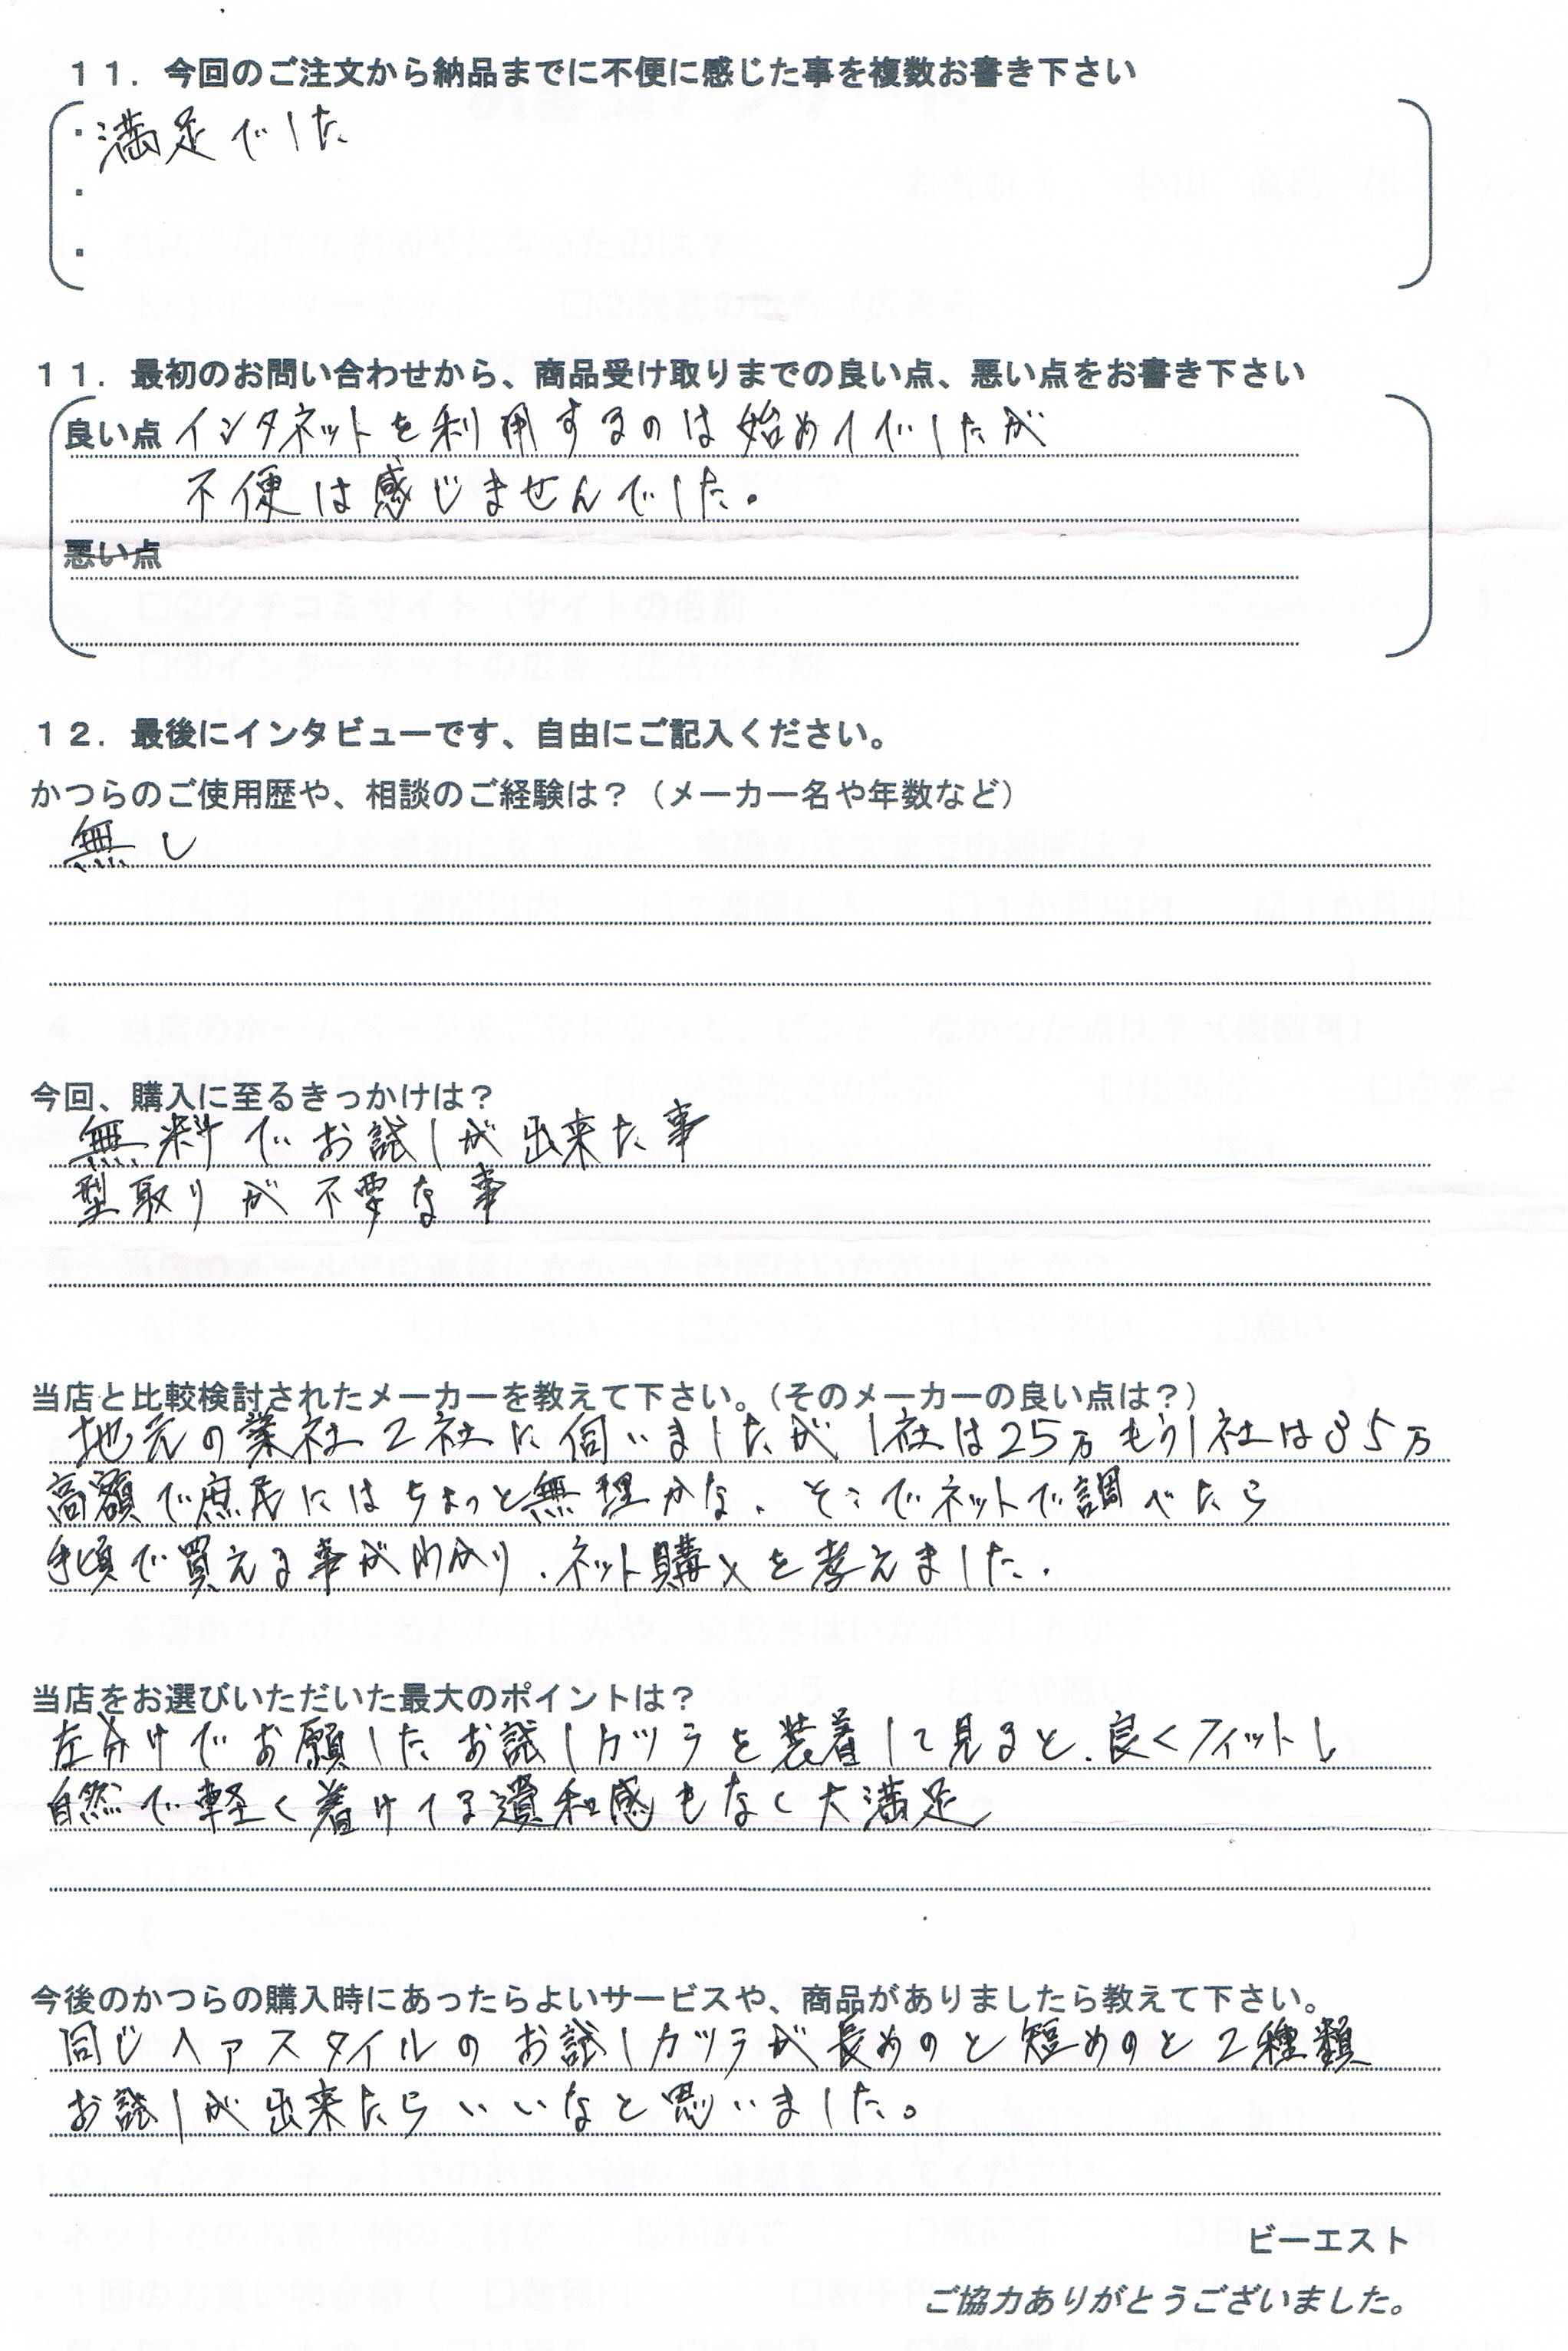 １１．今回のご注文から納品までに不便に感じた事を複数お書き下さい
・満足でした
・
・
１１．最初のお問い合わせから、商品受け取りまでの良い点、悪い点をお書き下さい
良い点 インタネットを利用するのは始めてでしたが
不便は感じませんでした。
悪い点
１２．最後にインタビューです、自由にご記入ください。
かつらのご使用歴や、相談のご経験は？（メーカー名や年数など）
無し
今回、購入に至るきっかけは？
無料でお試しが出来た事
型取りが不要な事
当店と比較検討されたメーカーを教えて下さい。（そのメーカーの良い点は？）
地元の業社2社に伺いましたが1社は25万もう1社は85万
高額で庶民にはちょっと無理かな、そこでネットで調べたら
手頃で買える事がわかり、ネット購入を考えました。
当店をお選びいただいた最大のポイントは？
左分けでお願したお試しカツラを装着して見ると、良くフィットし
自然で軽く着けてる違和感もなく大満足
今後のかつらの購入時にあったらよいサービスや、商品がありましたら教えて下さい。
同じヘアスタイルのお試しカツラが長めのと短めのと2種類
お試しが出来たらいいなと思いました。
ビーエスト
ご協力ありがとうございました。